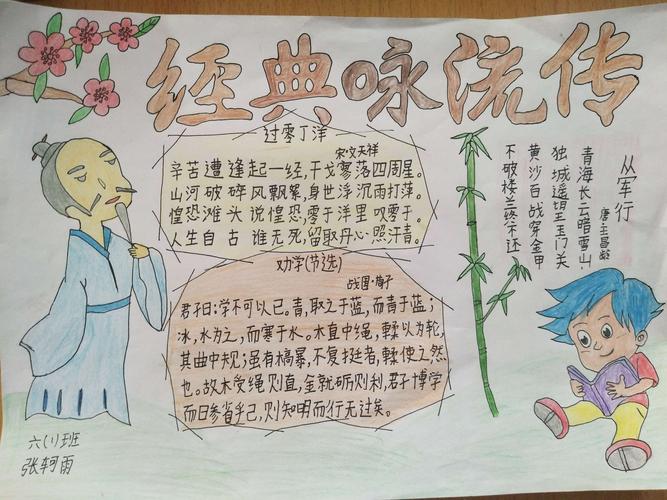 经典咏流传
过零丁洋
宋·文天祥
辛苦遭逢起一经,干戈寥落四周星。
山河破碎风飘絮,身世浮沉雨打萍。
惶恐滩头说惶恐,零于洋里叹零于。
人生自古谁无死,留取丹心照汗青。
劝学(节选)
战国·荀子
君子曰:学不可以已。青,取之于蓝,而青于蓝;
冰,水为之,而寒于水。木直中绳,輮以为轮,
其曲中规;虽有槁暴,不复挺者,輮使之然
也。故木受绳则直,金就砺则利,君子博学
而日参省乎己,则知明而行无过矣。
从军行
唐·王昌龄
青海长云暗雪山,
独城遥望玉门关
黄沙百战穿金甲
不破楼兰终不还
六(1)班
张轲雨